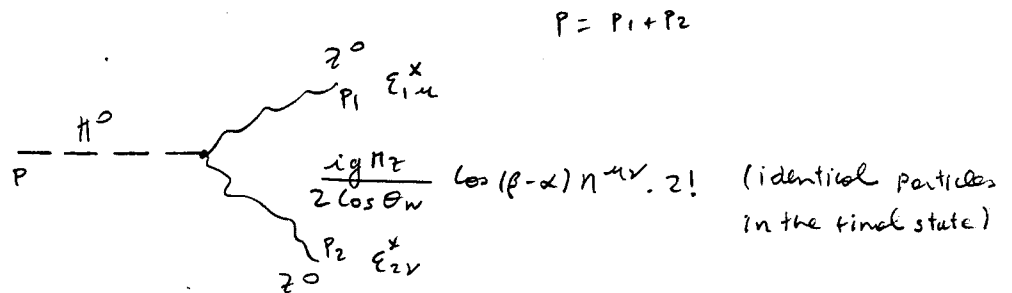 P = P₁ + P₂
Z⁰
P₁ ε₁*μ
H⁰
P
igM_Z / 2 cos θ_W cos (β-α) η^μν . 2! (identical particles
in the final state)
P₂ ε*₂ν
Z⁰